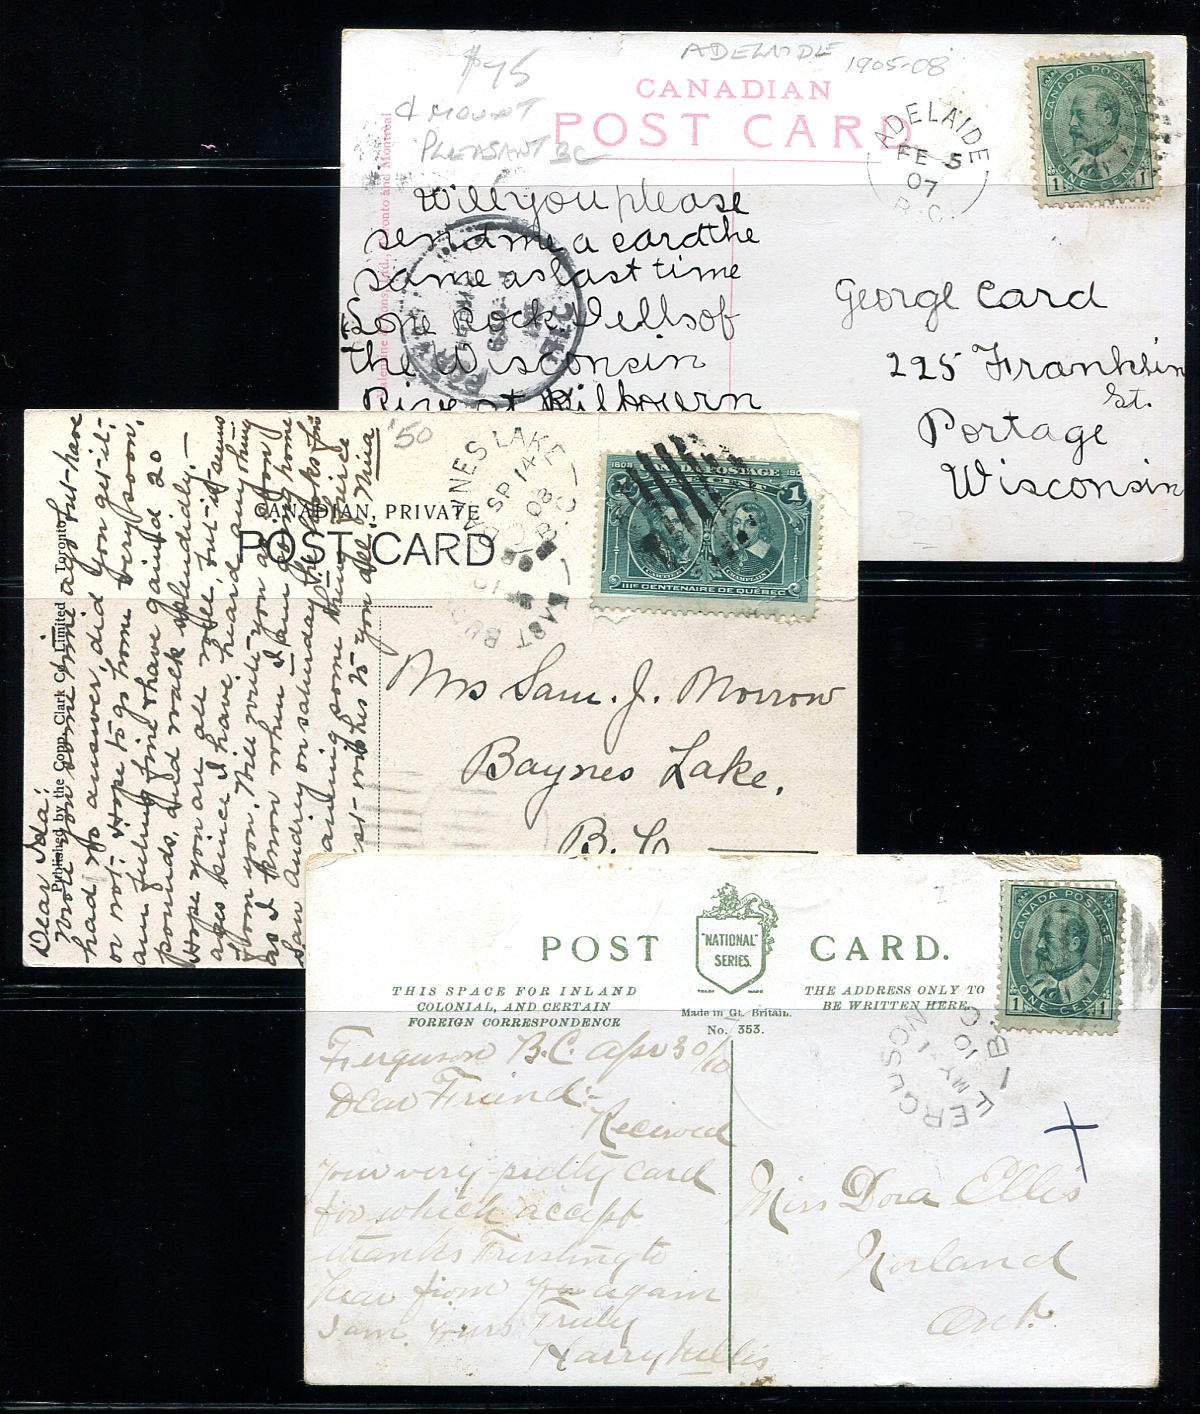 $75
ADELAIDE
1905-08
& MOUNT
PLEASANT BC
CANADIAN
POST CARD
ADELAIDE
FE 5
07
B.C.
CANADA POSTAGE
1 1
ONE CENT
Toronto and Montreal
Will you please
send me a card the
same as last time
Lone Rock Dells of
the Wisconsin
River at Kilbourn
George Card
225 Franklin
St.
Portage
Wisconsin
'50
CANADIAN, PRIVATE
POST CARD
Published by the Copp, Clark Co. Limited Toronto
BAYNES LAKE
SP 14
08
B.C.
EAST
1608
CANADA POSTAGE
1
CHAMPLAIN
IIIe CENTENAIRE DE QUÉBEC
Dear Ida:
Wrote you some time ago but have
had no answer, did you get it
or not. Hope to go home very soon,
am feeling fine & have gained 20
pounds, and walk splendidly. —
Hope you are all well, but it seems
ages since I have heard anything
from you. Will write you as soon
as I know when I am going home
Saw Audrey on Saturday she looks fine
some thing fierce
wishes to you all Nina
Mrs Sam. J. Morrow
Baynes Lake.
B. C.
POST CARD.
"NATIONAL"
SERIES.
TRADE MARK
THIS SPACE FOR INLAND
COLONIAL, AND CERTAIN
FOREIGN CORRESPONDENCE
THE ADDRESS ONLY TO
BE WRITTEN HERE.
Made in Gt. Britain.
No. 353.
CANADA POSTAGE
1 1
ONE CENT
FERGUSON
MY 1
10
B.C.
Ferguson B.C. Apr 30/10
Dear Friend:-
Received
your very pretty card
for which accept
thanks Trusting to
hear from you again
I am yours Truly
Harry Willis
Miss Dora Ellis
Norland
Ont.